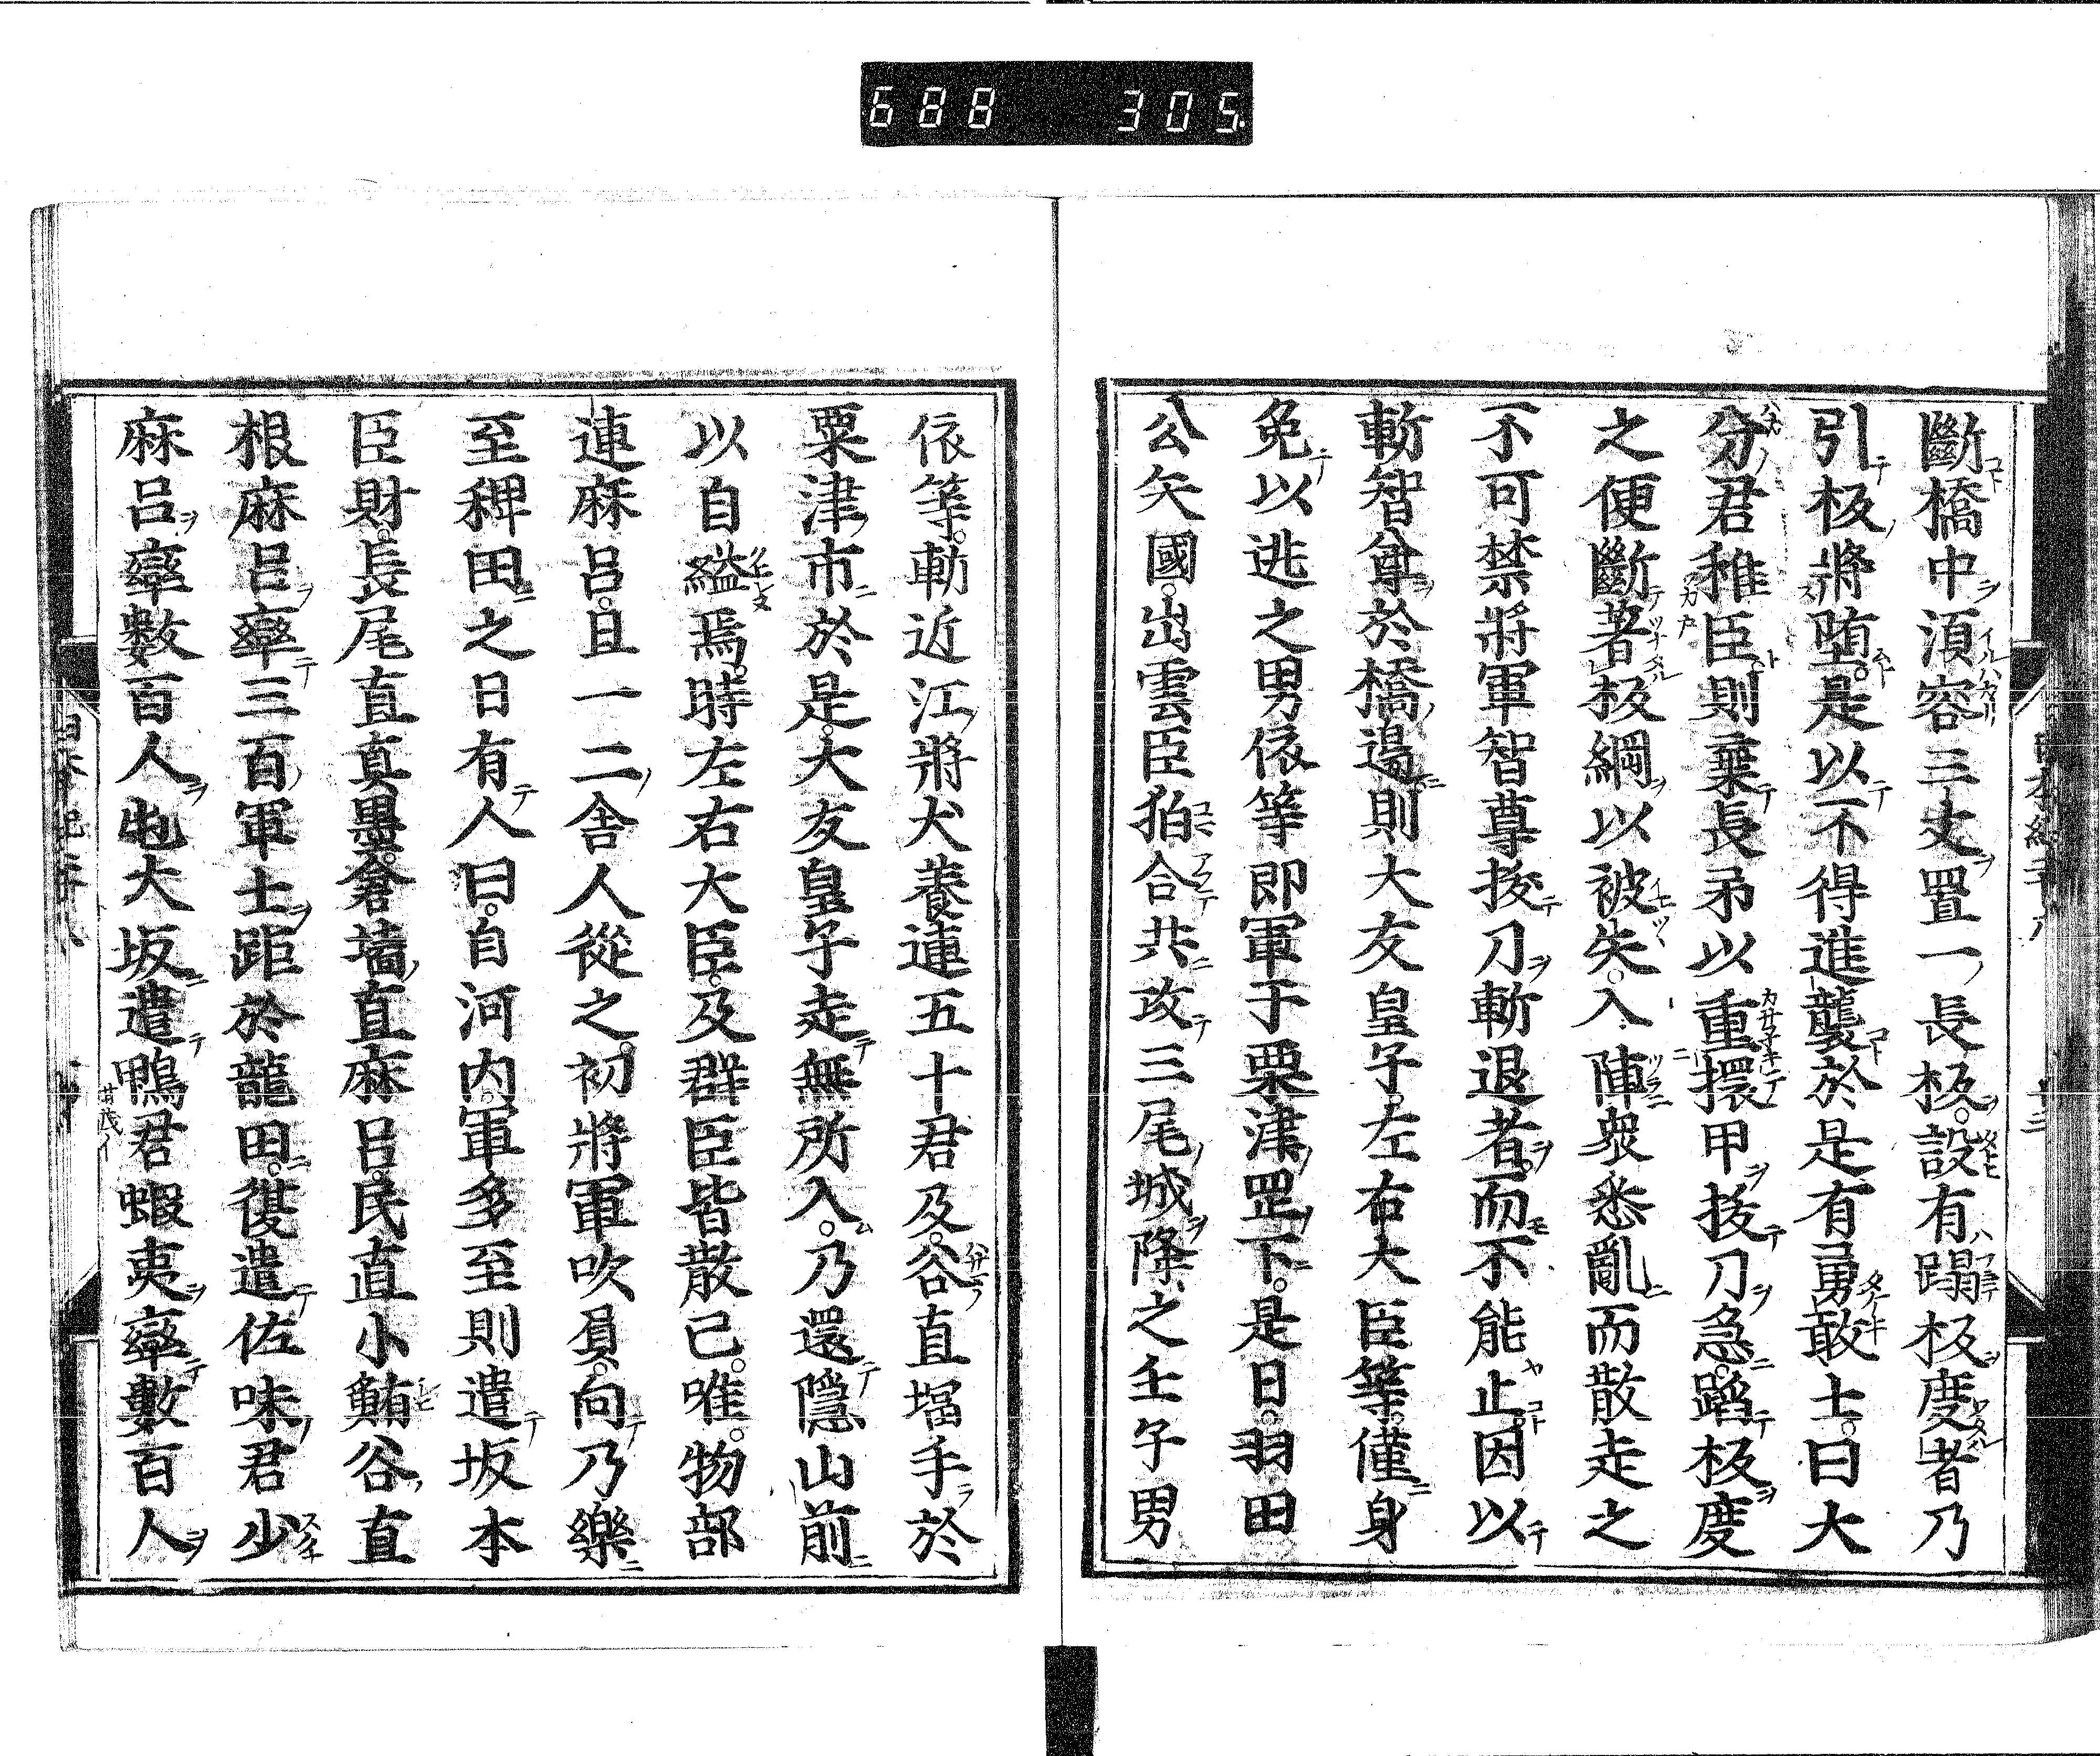 688 305
斷橋中湏容三丈置一長板。設有蹋板度者乃
引板將墮。是以不得進襲於是有勇敢士。曰大
分君稚臣則棄長矛以重擐甲抜刀急。蹈板度
之便斷著板綱以被矢。入陣衆悉亂而散走之
不可禁將軍智尊抜刀斬退者。而不能止因以
斬智尊於橋邊則大友皇子。左右大臣等。僅身
免以逃之男依等即軍于粟津罡下。是日。羽田
公矢國。出雲臣狛合共攻三尾城降之壬子男
依等。斬近江將犬養連五十君及。谷直塩手於
粟津市於是。大友皇子走無所入。乃還隱山前
以自縊焉。時左右大臣。及群臣皆散已。唯。物部
連麻呂。且一二舎人從之。初將軍吹負。向乃樂
至稗田之日有人曰。自河内。軍多至則遣坂本
臣財。長尾直真墨。倉墻直麻呂。民直小鮪谷直
根麻呂率三百軍士距於龍田。復遣佐味君少
麻呂率數百人屯大坂遣鴨君蝦夷率數百人